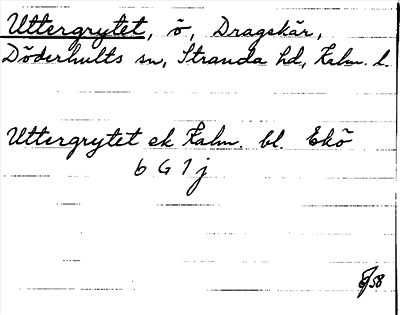 Uttergrytet, ö, Dragskär,
Döderhults sn, Stranda hd, Kalm. l.
Uttergrytet ek Kalm. bl. Ekö
6 G 1 j
58